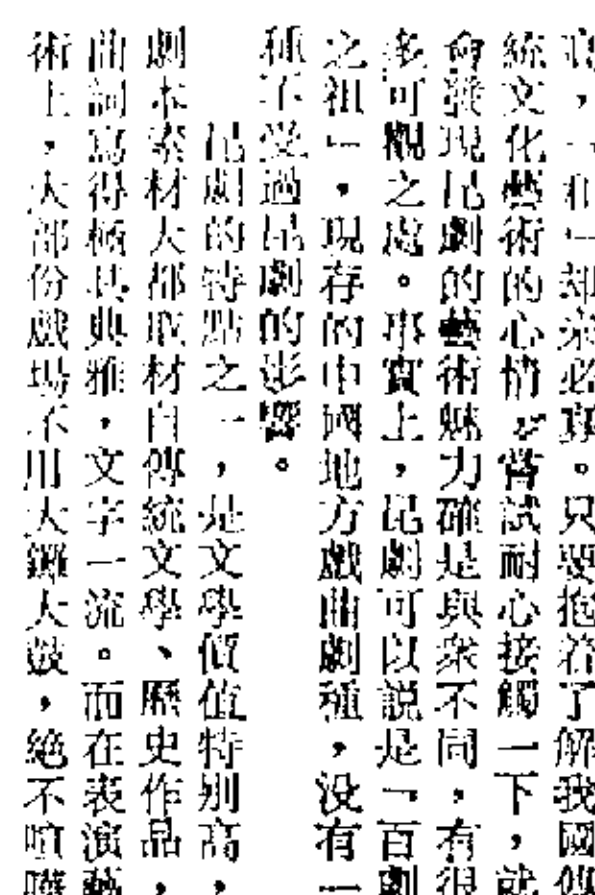 高,「和」却未必真。只要抱着了解我國傳
統文化藝術的心情,嘗試耐心接觸一下,就
會發現崑劇的藝術魅力確是與衆不同,有很
多可觀之處。事實上,崑劇可以説是「百劇
之祖」,現存的中國地方戲曲劇種,没有一
種不受過崑劇的影響。
崑劇的特點之一,是文學價值特别高,
劇本素材大都取材自傳統文學、歷史作品,
曲詞寫得極其典雅,文字一流。而在表演藝
術上,大部份戲場不用大鑼大鼓,絶不喧嘩